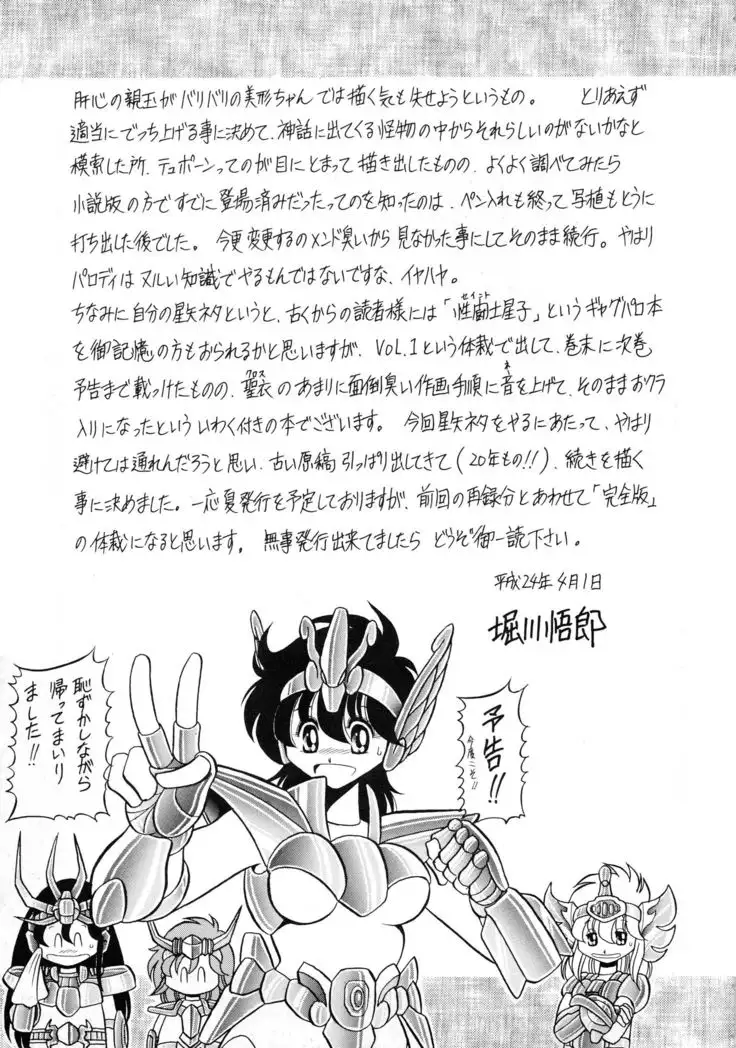 肝心の親玉がバリバリの美形ちゃんでは描く気も失せようというもの。 とりあえず
適当にでっち上げる事に決めて、神話に出てくる怪物の中からそれらしいのがないかなと
模索した所、テュポーンってのが目にとまって描き出したものの、よくよく調べてみたら
小説版の方ですでに登場済みだったってのを知ったのは、ペン入れも終って写植もとうに
打ち出した後でした。 今更変更するのメンド臭いから見なかった事にしてそのまま続行。やはり
パロディはヌルい知識でやるもんではないですな、イヤハヤ。
ちなみに自分の星矢ネタというと、古くからの読者様には「性闘士星子」というギャグパロ本
セイント
を御記憶の方もおられるかと思いますが、VOL.1という体裁で出して、巻末に次巻
予告まで載っけたものの、聖衣のあまりに面倒臭い作画手順に音を上げて、そのままオクラ
クロス
ネ
入りになったといういわく付きの本でございます。 今回星矢ネタをやるにあたって、やはり
避けては通れんだろうと思い、古い原稿引っぱり出してきて(20年もの!!)、続きを描く
事に決めました。一応夏発行を予定しておりますが、前回の再録分とあわせて「完全版」
の体裁になると思います。 無事発行出来てましたら どうぞ御一読下さい。
平成24年4月1日
堀川悟郎
予告!!
今度こそ!!
恥ずかしながら
帰ってまいり
ました!!